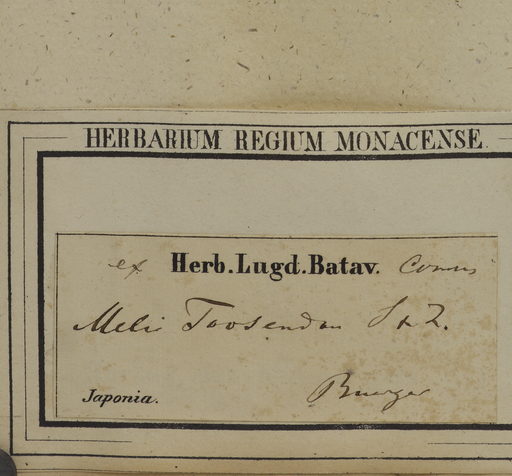 HERBARIUM REGIUM MONACENSE
ex Herb. Lugd. Batav. Comm
Melia Toosendan S & Z.
Japonia. Buerger